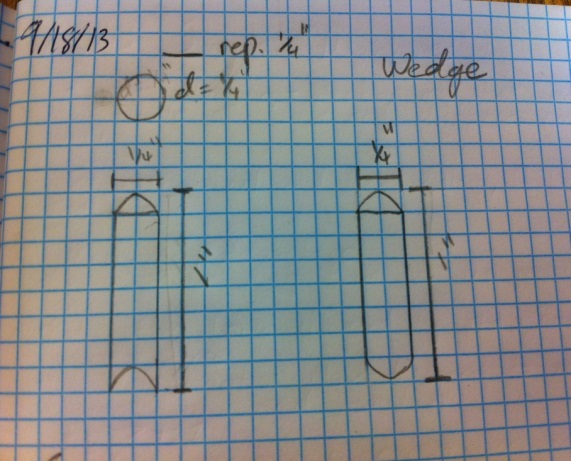 9/18/13
— rep. 1/4"
d = 1/4"
Wedge
1/4"
1/4"
1"
1"